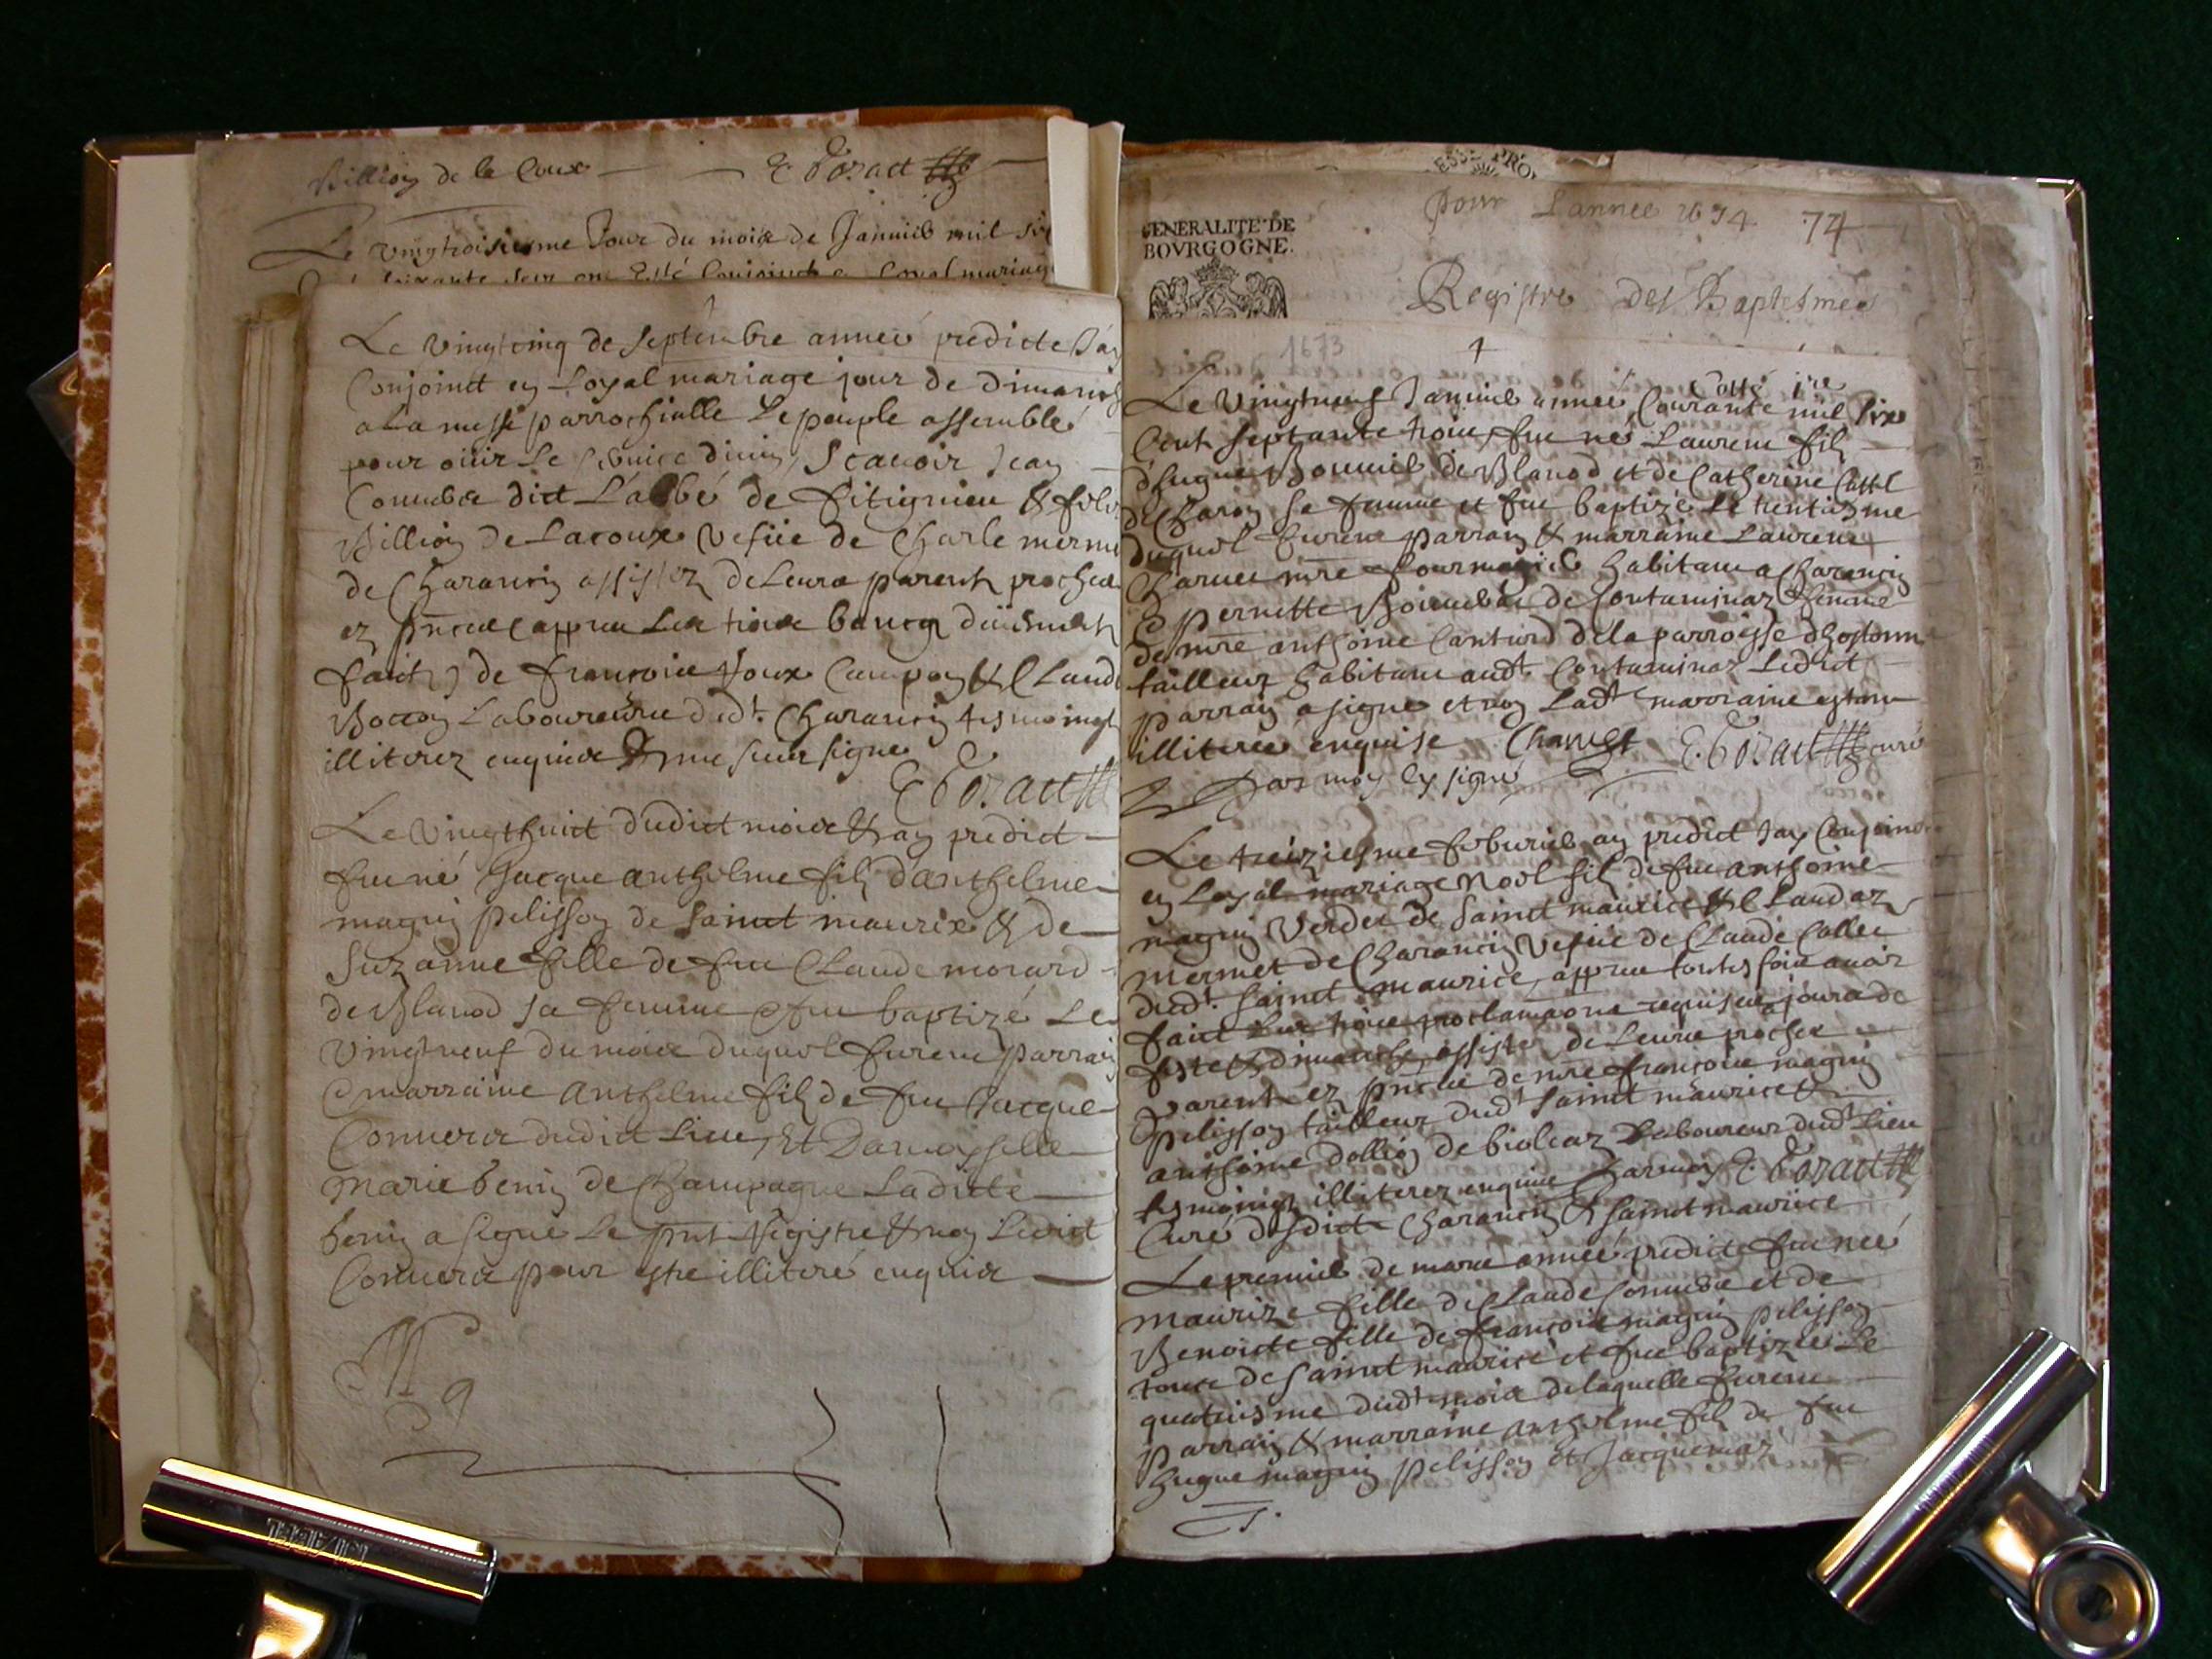 Billion de la Coux — E Bozact
Le vingtroisiesme Jour du mois de Januier mil six
soixante
Le vingtcinq de septembre anneé predicte J'ay
Conjoinct en Loyal mariage jour de dimanch
a La messe parrochialle Le peuple assemblé
pour oüir Le seruice diuin, Scauoir Jean
Conuers dict L'abbé de fitignieu &
Billion De Lacoux vefue de Charle merm
de Charancin assistez de Leurs parents proches
ez pnces appres Les trois bancqs
faicts de francois Roux Campon & Claud
Boccon Laboureurs dudt. Charancin tesmoingts
illiterez enquis & me suis signe
E Bozact
Le vingthuict dudict mois & an predict
fut né Jacque anthelme fils d'anthelme
magnin pelisson de Sainct maurix & de
Suzanne fille de feu Claude morard
de Blanod sa femme & fut baptizé Le
vingtneuf du mois duquel furent parrain
& marraine anthelme fils de feu Jacque
Conuers dudict Lieu, Et Damoyselle
marie benin de Champagne Ladicte
benin a signé Le pnt Registre & non Ledict
Conuers pour estre illiteré enquis
GENERALITE DE
BOVRGOGNE.
pour Lannee 1674 74
Registre des Baptesmes
1673
Cotté 1re
Le vingtneuf Januier année Courante mil six
Cent septante trois fut né Laurent fils
d'hugue Bonnier de Blanod et de Catherine Cattel
de Charon sa femme et fut baptizé Le trentiesme
duquel furent parrain & marraine Laurent
Charuet mre habitant a Charancin
& pernette de Contaminaz femme
de mre anthoine de la parroisse d'hostonn
tailleur habitant audt. Contaminaz Ledict
parrain a signé et non Ladt marraine estant
illiterée enquise Charuet E. Bozact curé
par moy
Le treiziesme feburier an predict J'ay Conjoinct
en Loyal mariage Noel fils de feu anthoine
magnin verdet de Sainct maurice & Claudaz
mermet de Charancin vefue de Claude Collet
dudt. Sainct maurice, appres toutes fois auoir
faict Les trois proclamaons requises jours de
feste & dimanche, assistez de Leurs proches
parents ez pnce de mre francois magnin
pelisson tailleur dudt Sainct maurice &
anthoine dollion de bioleaz Laboureur dudt Lieu
tesmoings illiterez enquis par moy E. Bozact
Curé desdicts Charancin & Sainct maurice
Le premier de mars anneé predicte fut née
maurize fille de Claude Conuers et de
Benoicte fille de francois magnin pelisson
tous de Sainct maurice et fut baptizée Le
quatriesme dudt mois de laquelle furent
parrain & marraine anthelme fils de feu
hugue magnin pelisson et Jacquemaz